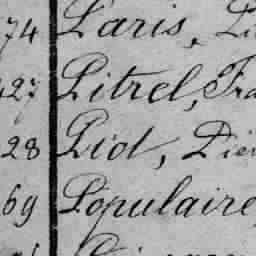 74 Paris,
427 Pitrel, Fra
28 Piot, Pier
69 Populaire,